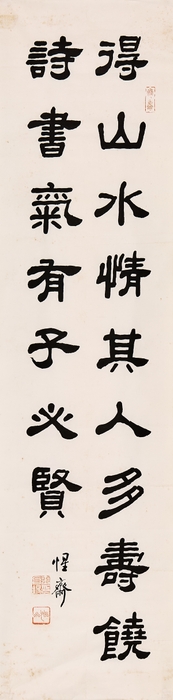 得山水情其人多壽饒
詩書氣有子必賢
惺齋